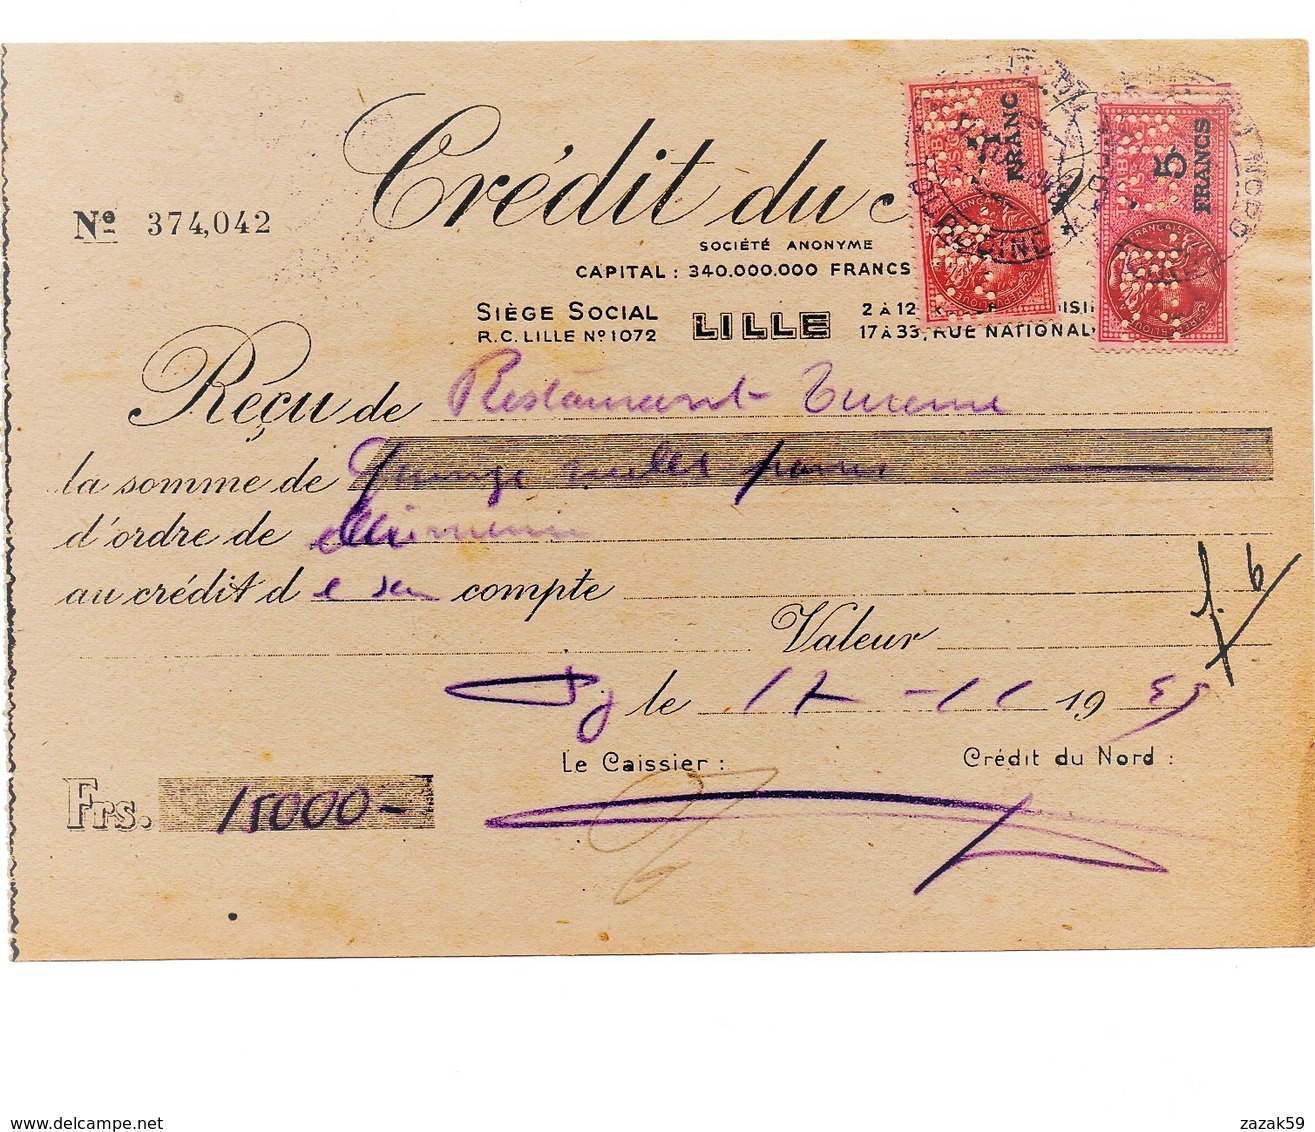 Crédit du
Nº 374,042
SOCIÉTÉ ANONYME
CAPITAL : 340.000.000 FRANCS
SIÈGE SOCIAL LILLE 2 À 12
R.C. LILLE Nº 1072 17 À 33, RUE NATIONAL
1 FRANC
5 FRANCS
Reçu de Restaurant Turenne
la somme de Quinze mille francs
d'ordre de
au crédit d e son compte
Valeur
le 17 - 11 1955
Le Caissier : Crédit du Nord :
Frs. 15000-
www.delcampe.net zazak59